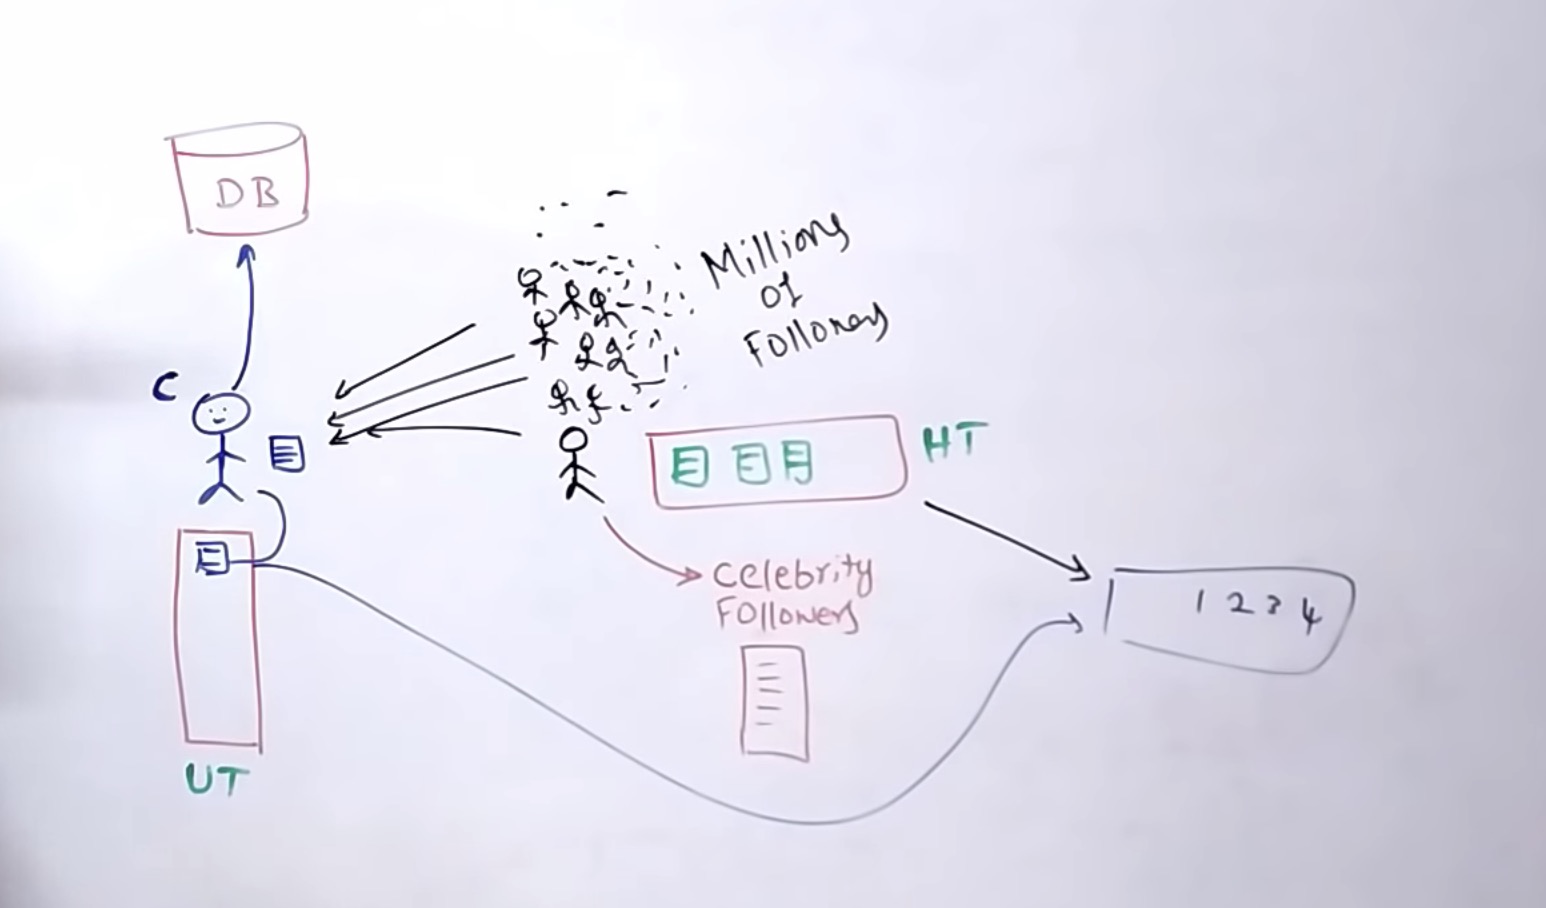 DB
Millions
of
Followers
C
HT
Celebrity
Followers
1 2 3 4
UT